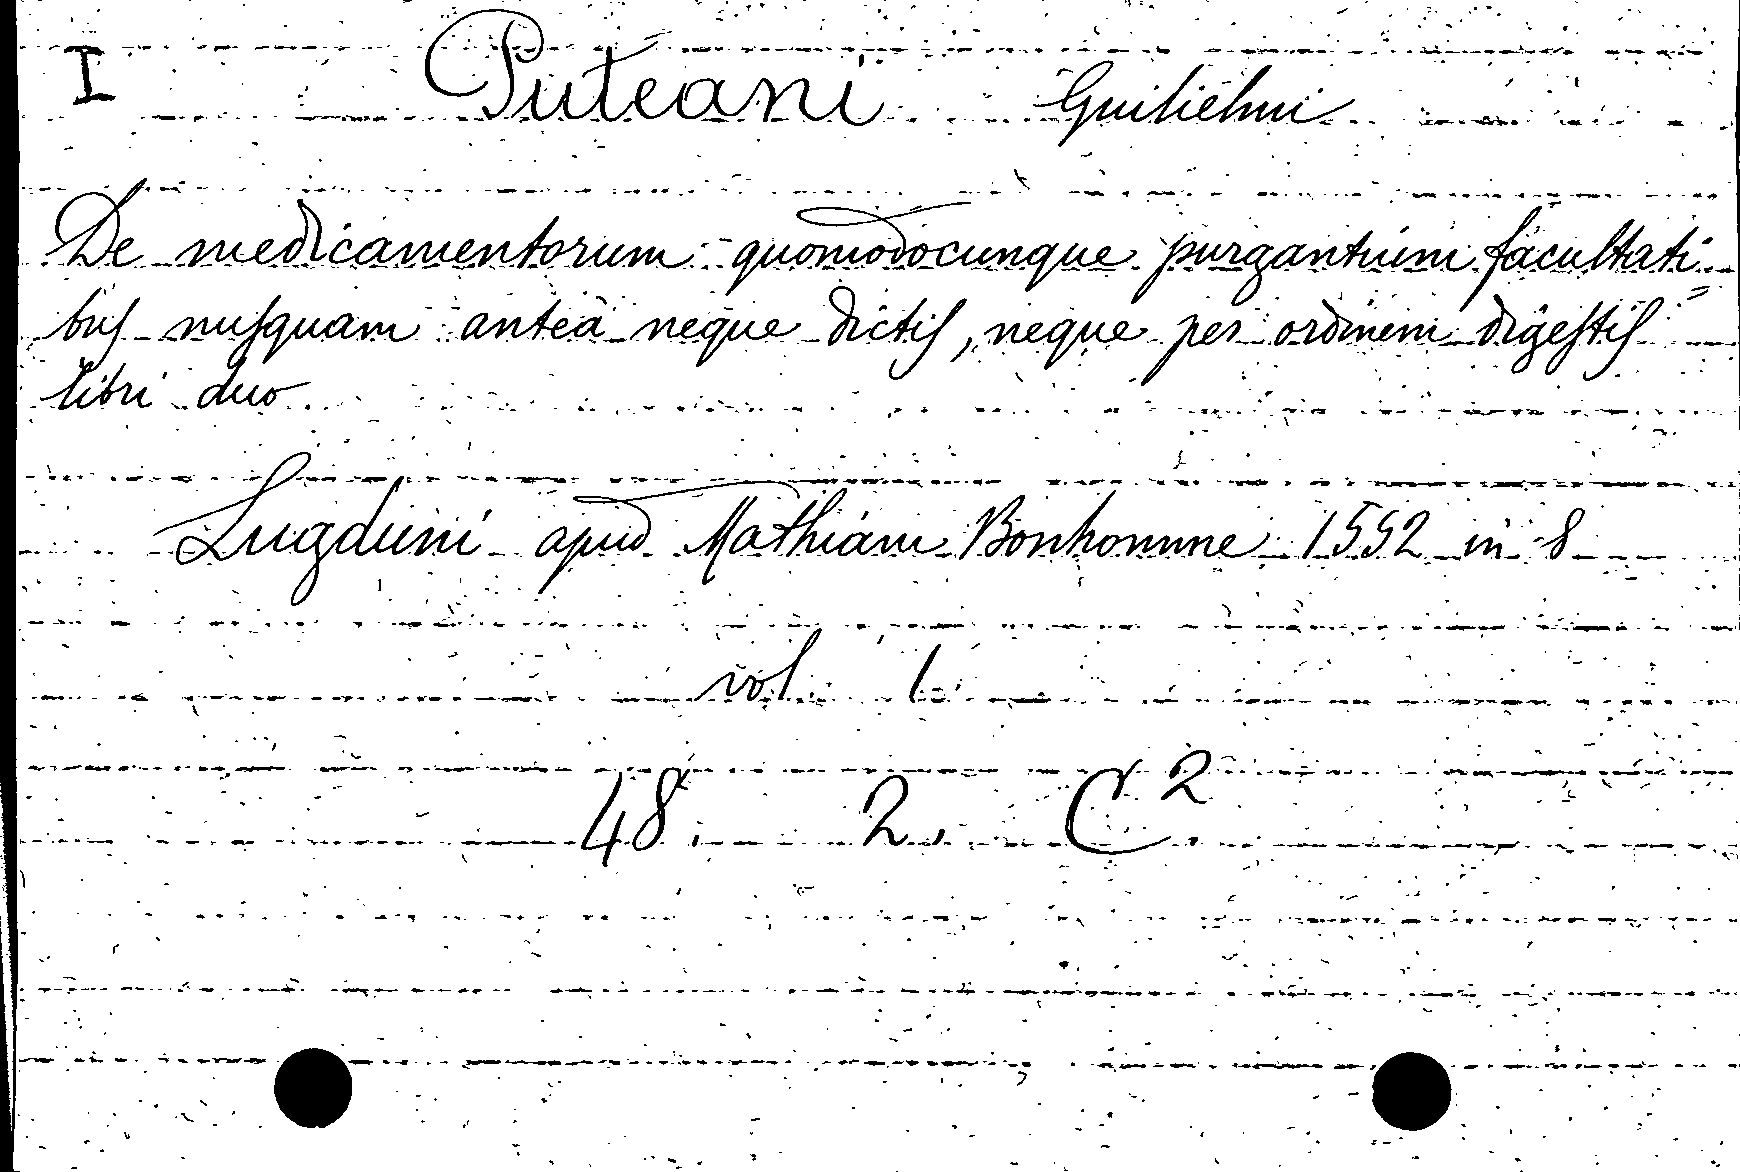 I Puteani Guilielmi
De medicamentorum quomodocunque purgantium facultati=
bus nusquam antea neque dictis, neque per ordinem digestis
libri duo
Lugduni apud Mathiam Bonhomme 1552 in 8
vol. 1.
48. 2. C².